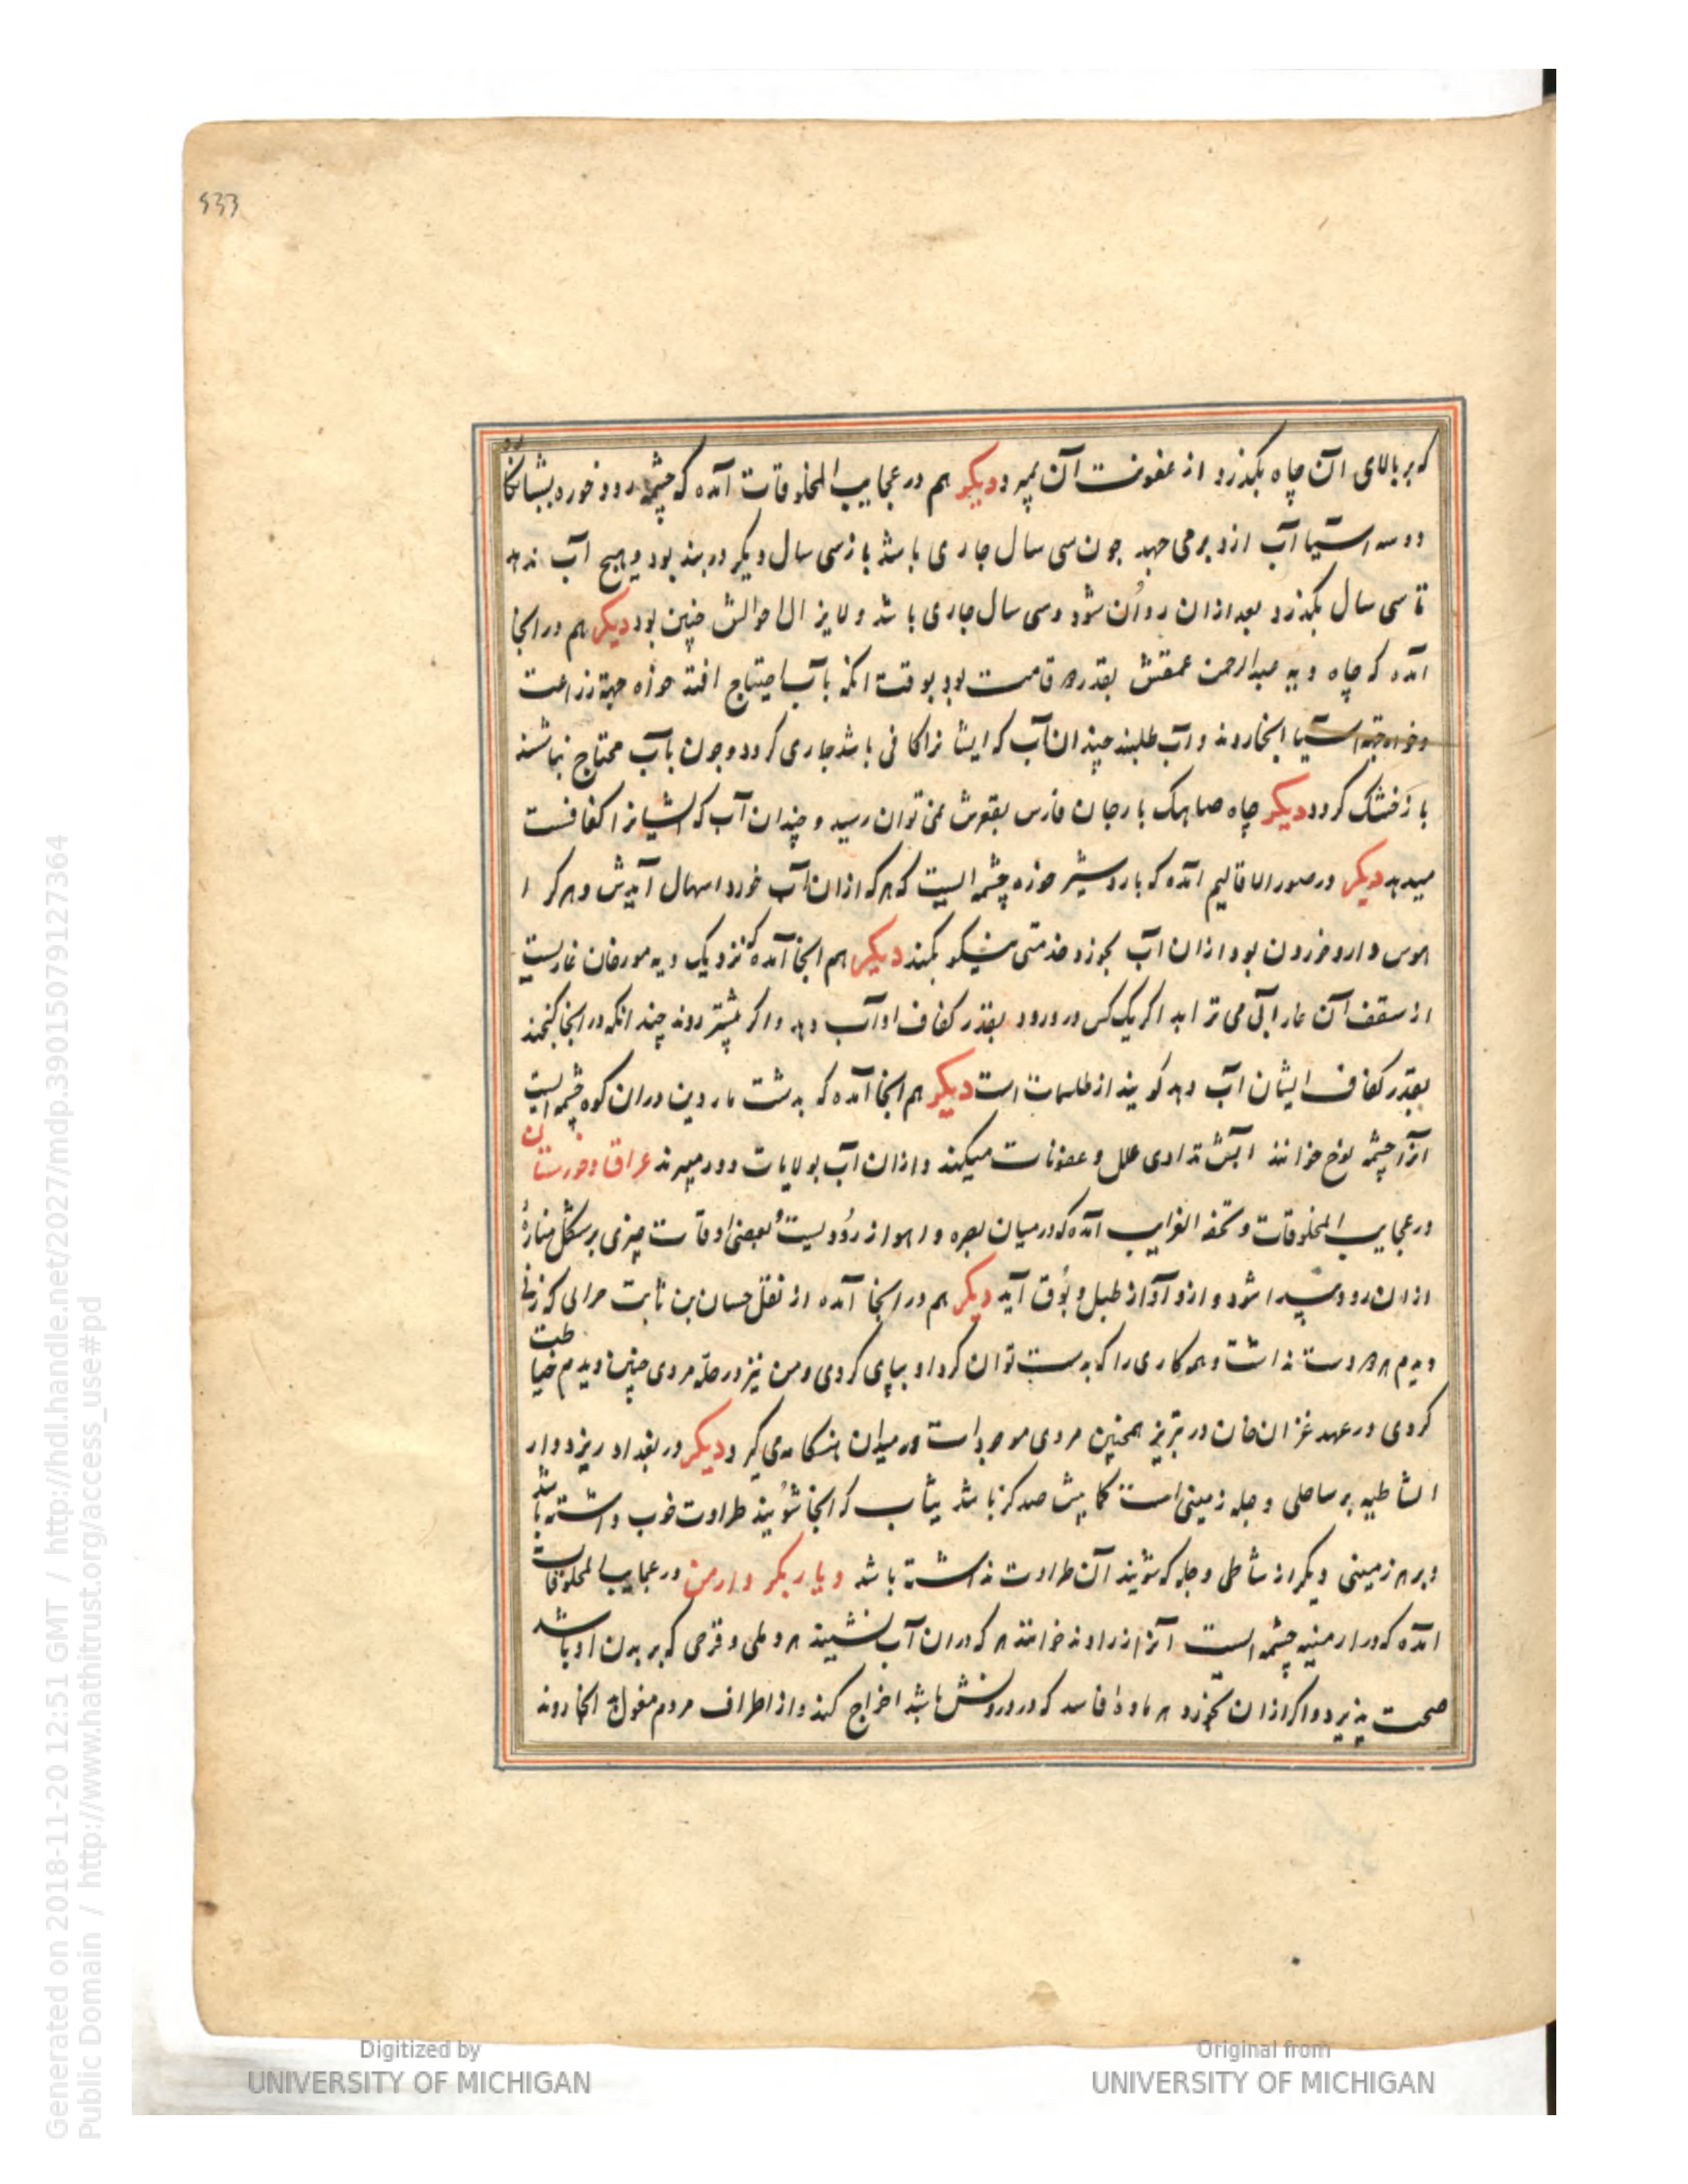 533
که بر بالای آن چاه بکذرد از عفونت آن بمیرد دیکر هم در عجایب المخلوقات آمده که چشمه رود خوره بیشانکا
دو سه آسیا آب ازو بر می جهد جون سی سال جاری باشد باز سی سال دیکر در بند بود و هیج آب ندهد
تا سی سال بکذرد بعد ازان روان شود و سی سال جاری باشد و لایزال احوالش چنین بود دیکر هم در انجا
آمده که چاه دیه عبدالرحمن عمقش بقدر دو قامت بود بوقت انکه بآب احتیاج افتد خواه جهة زراعت
و خواه جهة آسیا انجا روند و آب طلبند چندان آب که ایشانرا کافی باشد جاری کردد و جون بآب محتاج نباشند
باز خشک کردد دیکر چاه صاهک بارجان فارس بقعرش نمی توان رسید و چندان آب که ایشانرا کفافست
میدهد دیکر در صور الاقالیم آمده که باردشیر خوره چشمه ایست که هر که ازان آب خورد اسهال آیدش و هر کرا
هوس دارو خوردن بود ازان آب بخورد خدمتی نیکو بکند دیکر هم انجا آمده که نزدیک دیه مورجان غاریست
از سقف آن غار آبی می ترابد اکر یک کس در و رود بقدر کفاف او آب دهد و اکر بیشتر روند چند انکه در انجا کنجند
بقدر کفاف ایشان آب دهد کویند از طلسمات است دیکر هم انجا آمده که بدشت ماردین دران کوه چشمه ایست
آنرا چشمه نوح خوانند آبش تداوی علل و عفونات میکند و ازان آب بولایات دور میبرند عراق و خوزستان
در عجایب المخلوقات و تحفه الغرایب آمده که در میان بصره و اهواز رودیست بعضی اوقات چیزی بر شکل مناره
ازان رود پیدا شود و ازو آواز طبل و بوق آید دیکر هم در انجا آمده از نقل حسان بن ثابت حرانی که زنی
دیدم هر دو دست نداشت و همه کاری را که بدست توان کرد او بپای کردی و من نیز در حله مردی چنین دیدم خیاطت
کردی در عهد غزان خان در تبریز همچنین مردی موجود است و در میدان هنکامه می کیرد دیکر در بغداد ریز دوار
الشاطیه بر ساحل دجله زمینی است کمابیش صد کز باشد ثیاب که انجا شویند طراوت خوب داشته باشد
و بر هر زمینی دیکر از شاطی دجله که شویند آن طراوت نداشته باشد دیار بکر و ارمن در عجایب المخلوقات
آمده که در ارمنیه چشمه ایست آنرا زراوند خوانند هر که دران آب نشیند هر دملی و قرحی که بر بدن او باشد
صحت پذیرد و اکر ازان بخورد هر ماده فاسد که در درونش باشد اخراج کند و از اطراف مردم مغول انجا روند
Generated on 2018-11-20 12:51 GMT / http://hdl.handle.net/2027/mdp.39015079127364
Public Domain / http://www.hathitrust.org/access_use#pd
Digitized by
UNIVERSITY OF MICHIGAN
Original from
UNIVERSITY OF MICHIGAN